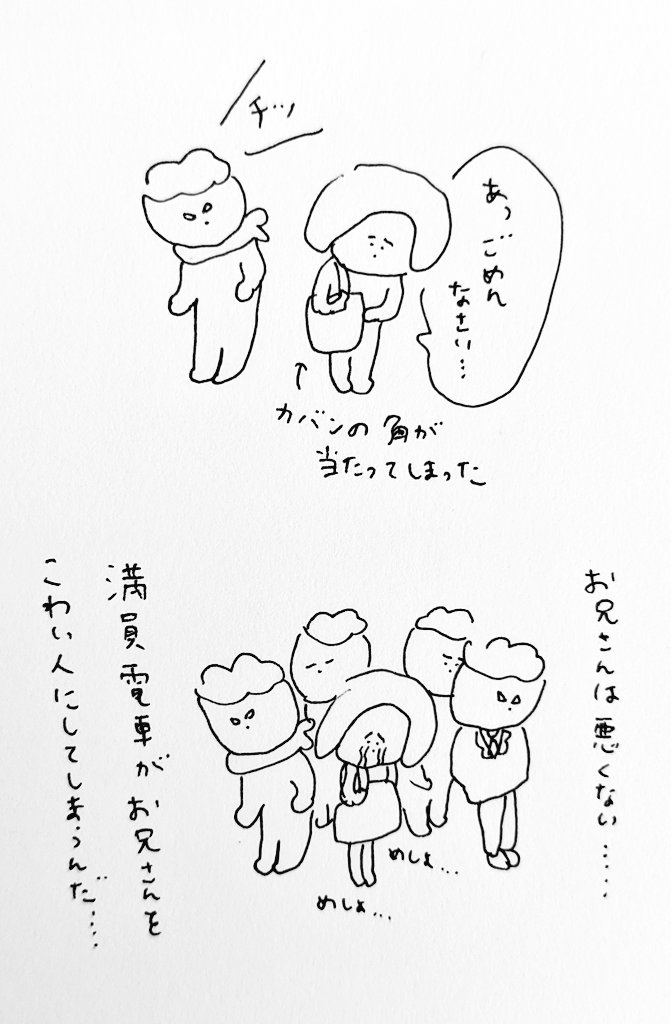 チッ
あっごめん
なさい…
↑
カバンの角が
当たってしまった
お兄さんは悪くない……
めしょ…
めしょ…
満員電車がお兄さんを
こわい人にしてしまうんだ……